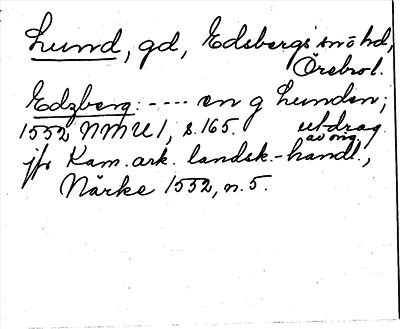 Lund, gd, Edsbergs sn o hd,
Örebro l.
Edzberg: ---- en g Lunden;
1552 NMU 1, s. 165. utdrag
av orig.
jfr Kam. ark. landsk.-handl.,
Närke 1552, n. 5.